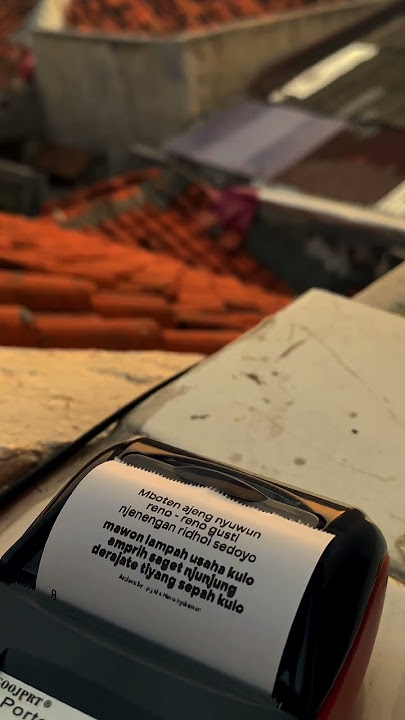 Mboten ajeng nyuwun
reno - reno gusti
njenengan ridhoi sedoyo
mawon lampah usaha kulo
amprih saget njunjung
derajate tiyang sepah kulo
B
GOOJPRT®
Porta